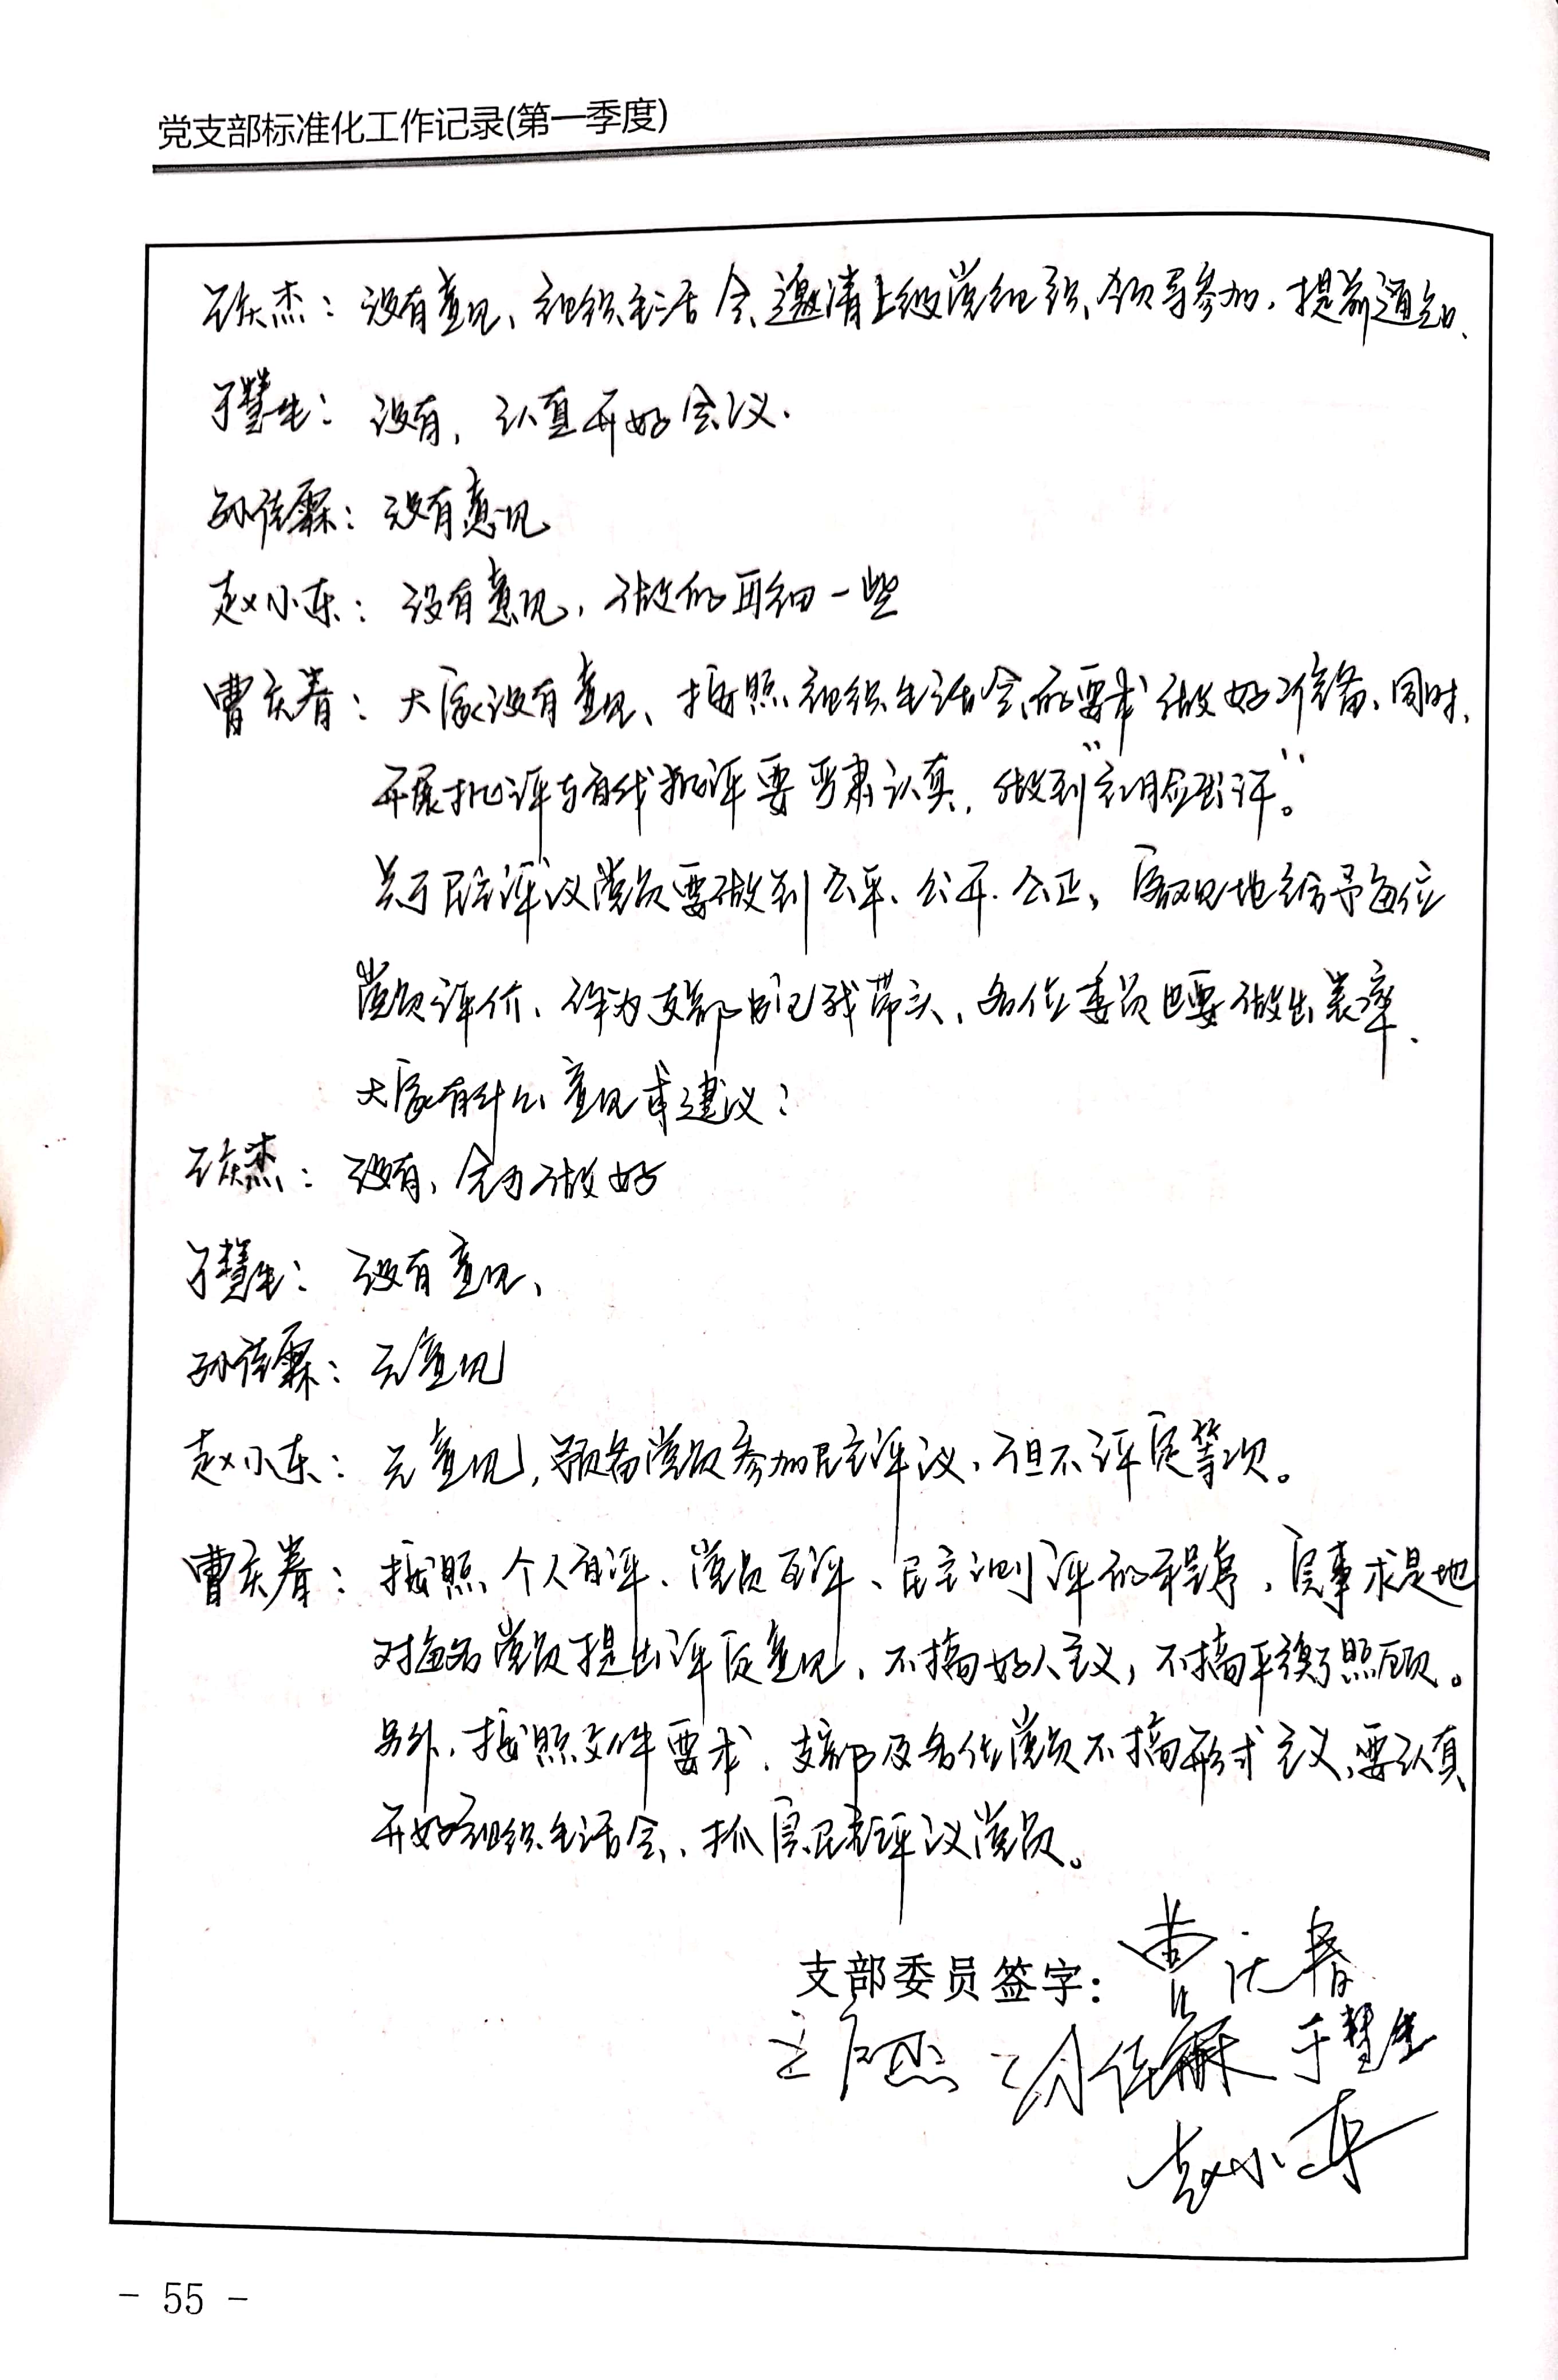 党支部标准化工作记录(第一季度)
王庆杰：没有意见、组织生活会邀请上级党组织领导参加，提前通知、
于慧生：没有，认真开好会议.
孙佳霖：没有意见
赵小东：没有意见，做的再细一些
曹庆春：大家没有意见、按照组织生活会的要求做好准备、同时、
开展批评与自我批评要严肃认真，做到“红脸出汗”。
关于民主评议党员要做到公平、公开.公正，客观地给予每位
党员评价、作为支部书记我带头、各位委员也要做出表率.
大家有什么意见或建议？
王庆杰：没有，全力做好
于慧生：没有意见、
孙佳霖：无意见
赵小东：无意见，预备党员参加民主评议、但不评定等次。
曹庆春：按照个人自评、党员互评、民主测评的程序，实事求是地
对每名党员提出评定意见、不搞好人主义，不搞平衡照顾。
另外，按照文件要求，支部及各位党员不搞形式主义，要认真
开好组织生活会、抓实民主评议党员。
支部委员签字：曹庆春
王庆杰 孙佳霖 于慧生
赵小东
- 55 -